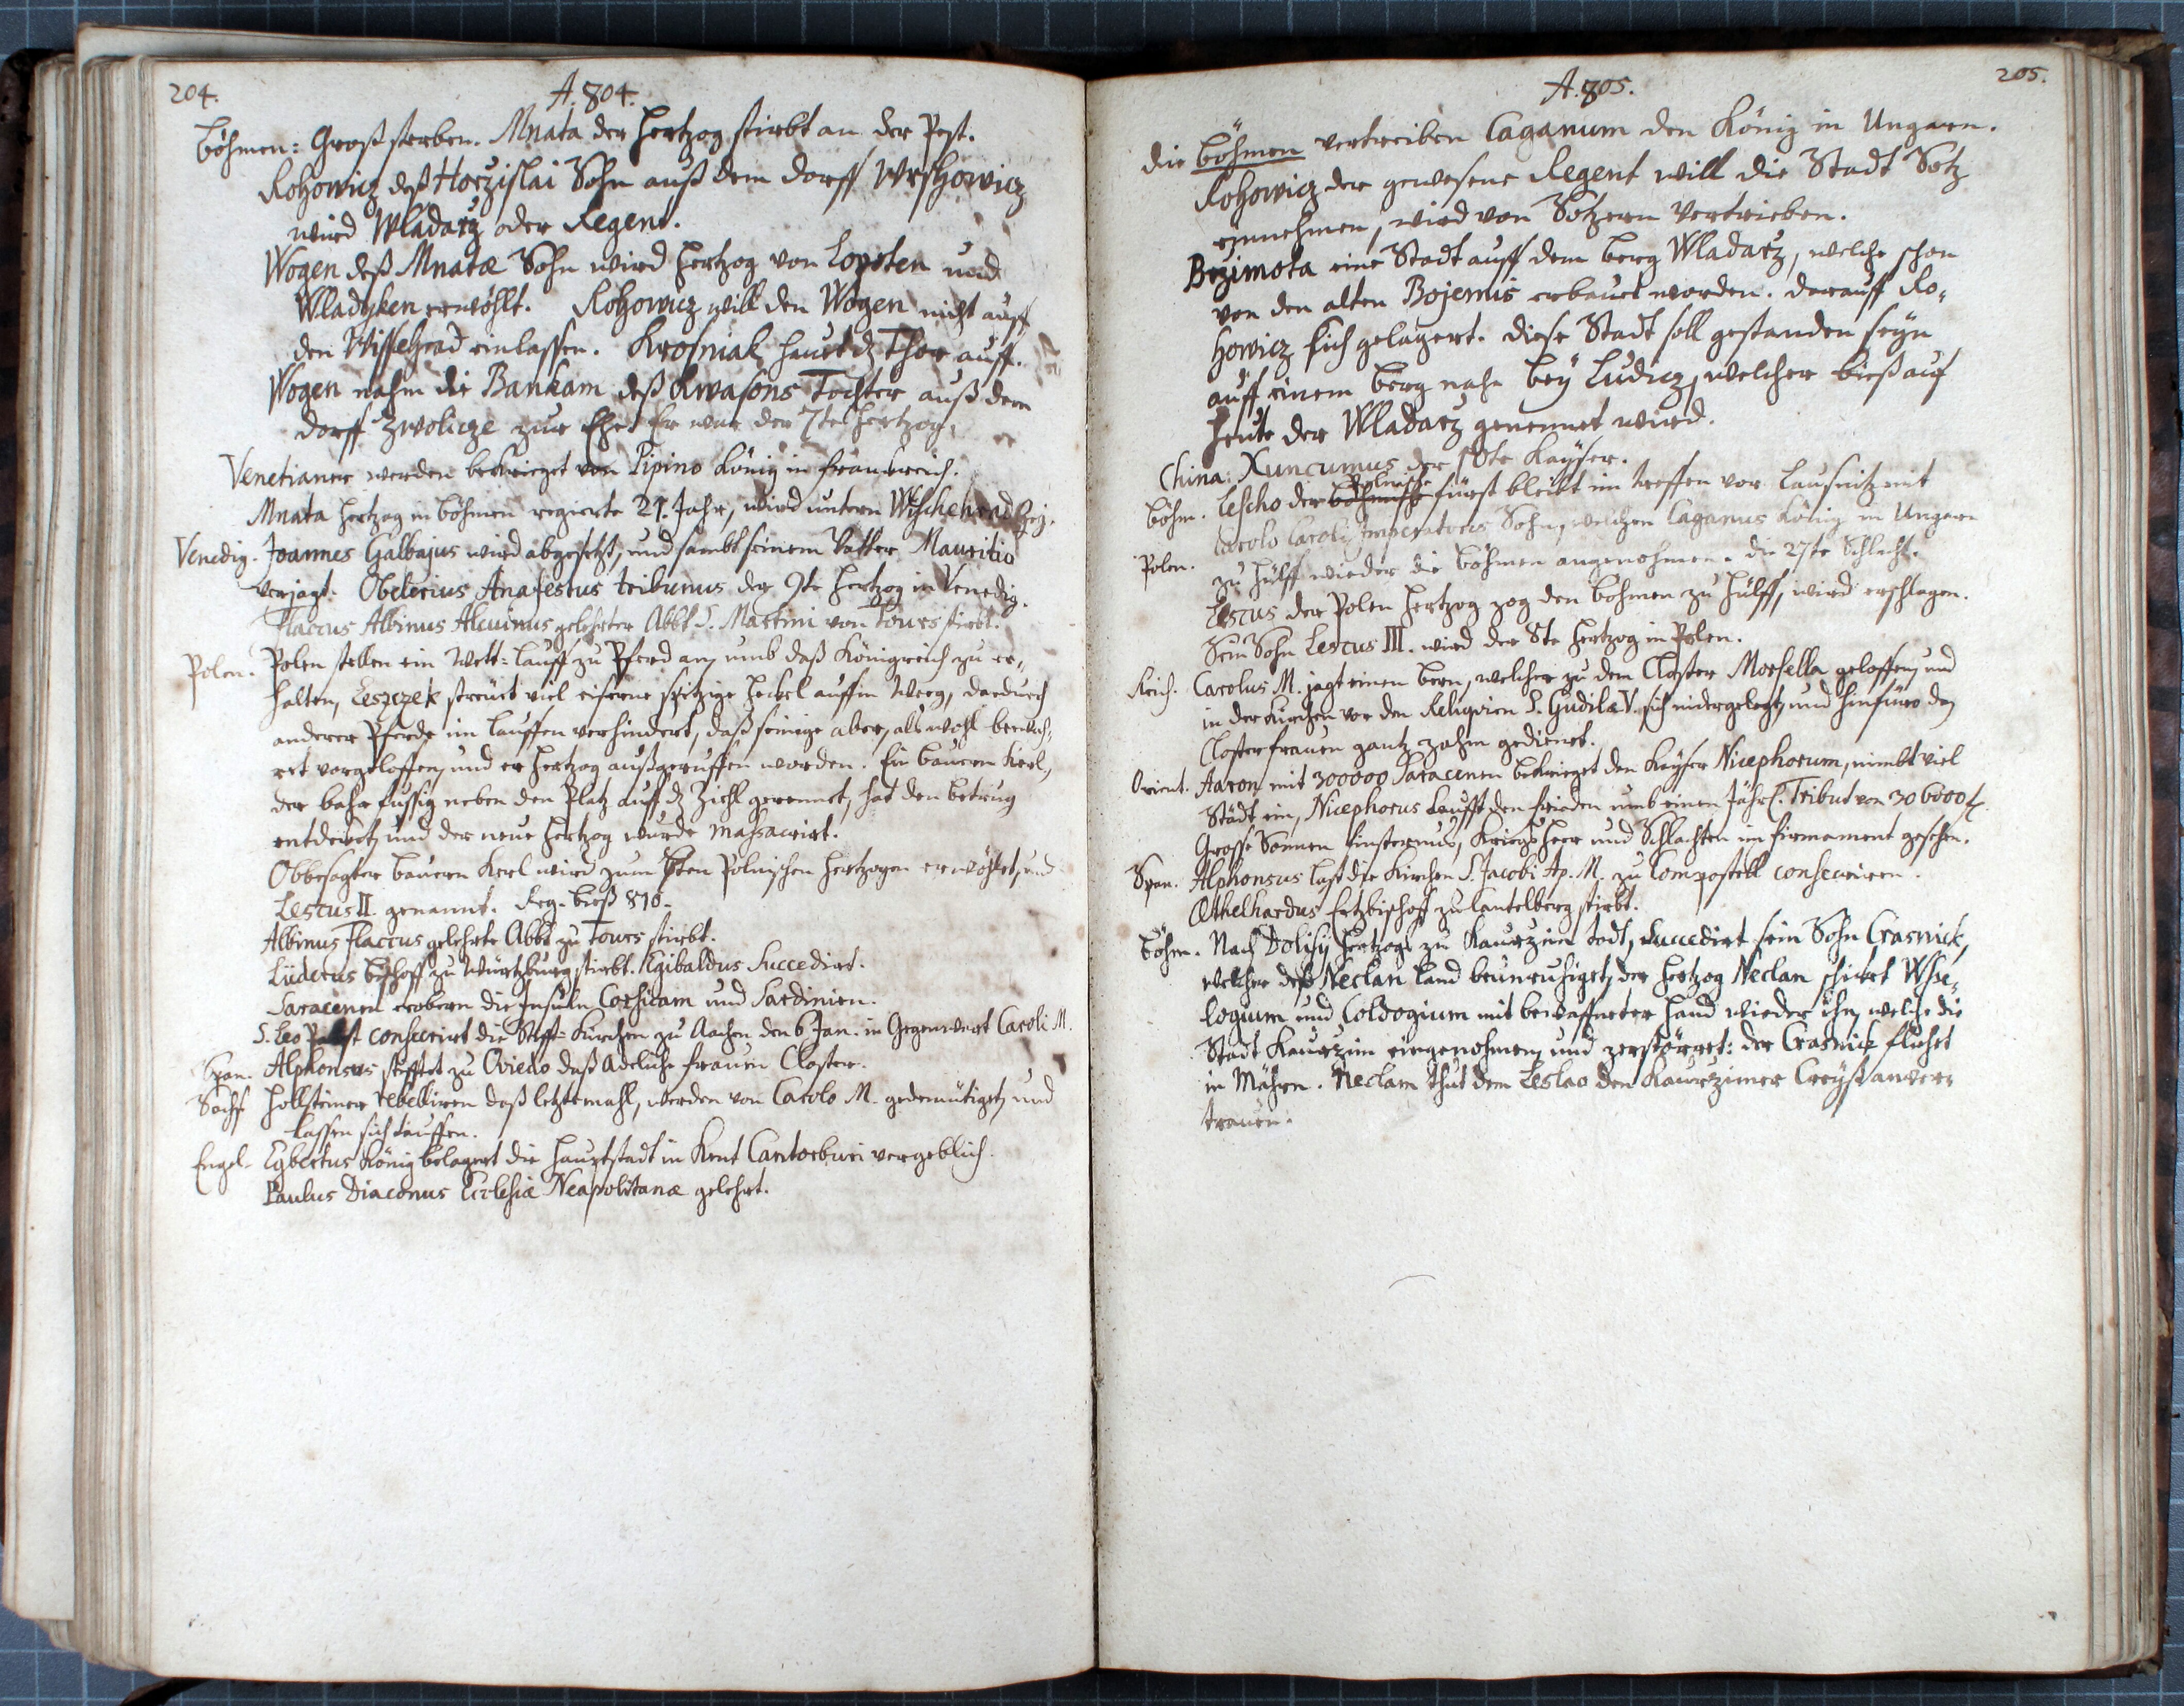 204.
A. 804.
Böhmen: Groß sterben. Mnata der Hertzog stirbt an der Pest.
Rohowicz deß Horzislai Sohn auß dem Dorff Wrshowicz
wird Wladarz oder Regent.
Wogen deß Mnatæ Sohn wird Hertzog von Lopoten und
Wladyken erwöhlt. Rohowicz will den Wogen nicht auff
den Wissehrad einlassen. Krosniak haut dz Thor auff.
Wogen nahm die Bankam deß Kwasons Tochter auß dem
Dorff Zwolicze zur Ehe. Er war der 7te Hertzog.
Venetianer werden bekrieget von Pipino König in Franckreich.
Mnata Hertzog in Böhmen regierte 21. Jahr, wird untern Wischehrad
Venedig. Joannes Galbajus wird abgesetzt, und sambt seinem Vatter Mauritio
verjagt. Obelerius Anafestus tribunus der 9te Hertzog in Venedig.
Flaccus Albinus Alcuinus gelehrter Abbt S. Martini von Tours stirbt.
Polen. Polen stellen ein Wett-lauff zu Pferd an, umb daß Königreich zu er-
halten, Leszczek streüet viel eiserne spitzige Heckel auffm Weeg, dardurch
anderer Pferde im lauffen verhindert, daß seinige aber, als wohl bewah-
ret vorgeloffen, und er Hertzog außgeruffen worden. Ein bauern Kerl,
der bahr fussig neben den Platz auff dz Ziehl gerennet, hat den betrug
entdeckt, und der neue Hertzog wurde massacrirt.
Obbesagter bauern Kerl wird zum Polnischen Hertzogen erwöhlet, und
Lescus II. genannt. Reg. bieß 810.
Albinus Flaccus gelehrte Abbt zu Tours stirbt.
Lüderus Bischoff zu Würtzburg stirbt. Egibaldus Succedirt.
Saracenen erobern die Insuln Corsicam und Sardinien.
S. Leo Pabst consecrirt die Stifft-Kirchen zu Aachen den 6 Jan. in Gegenwart Caroli M.
Span. Alphonsus stifftet zu Oviedo daß Adeliche frauen Closter.
Sachs. Hollsteiner rebelliren daß letztemahl, werden von Carolo M. gedemütiget, und
lassen sich tauffen.
Engel. Egbertus König belagert die Hauptstadt in Kent Cantorburi vergeblich.
Paulus Diaconus Ecclesiæ Neapolitanæ gelehrt.
205.
A. 805.
Die Böhmen vertreiben Caganum den König in Ungarn.
Rohowicz der gewesene Regent will die Stadt Sotz
einnehmen, wird von Sotzern vertrieben.
Bezimota eine Stadt auff dem berg Wladarz, welche schon
von den alten Bojemis erbauet worden. Darauff Ro-
howicz sich gelagert. Diese Stadt soll gestanden seyn
auff einem berg nahe beÿ Ludicz, welcher bieß auf
heute der Wladarz genennet wird.
China: Xuncumus der 10te Kaÿser.
Böhm. Lescho der böhmische Polnische fürst bleibt im treffen vor Lausnitz mit
Carolo Caroli Imperatoris Sohn, welchen Caganus König in Ungarn
Polen. zu hülff wieder die Böhmen angenohmen. Die 27te Schlacht.
Lescus der Polen Hertzog zog den Böhmen zu hülff, wird erschlagen.
Sein Sohn Lescus III. wird der 8te Hertzog in Polen.
Reich. Carolus M. jagt einen bern, welcher zu dem Closter Morsella geloffen, und
in der Kirchen vor den Reliquien S. Gudilæ V. sich nidergelegt, und hinfüro den
Closterfrauen gantz zahm gedienet.
Orient. Aaron mit 300000 Saracenen bekrieget den Kaÿser Nicephorum, nimbt viel
Städt ein, Nicephorus kaufft den frieden umb einen Jährl. Tribut von 306000
Grosse Sonnen finsternus, Kriegs Heer und Schlachten im firmament gesehen.
Span. Alphonsus last die Kirchen S. Jacobi Ap. M. zu Compostell consecriren.
Æthelhardus Ertzbischoff zu Cantelberg stirbt.
Böhm. Nach Dolisij Hertzogs zu Kaurzim todt, Succedirt sein Sohn Crasnick,
welcher deß Neclan land beunruhiget, der Hertzog Neclan schickt Wse-
logium und Coldogium mit bewaffneter hand wieder ihn, welche die
Stadt Kaurzim eingenohmen, und zerstörret: der Crasnick fliehet
in Mähren. Neclam thut dem Leslao den Kaurzimer Creÿß anver-
trauen.